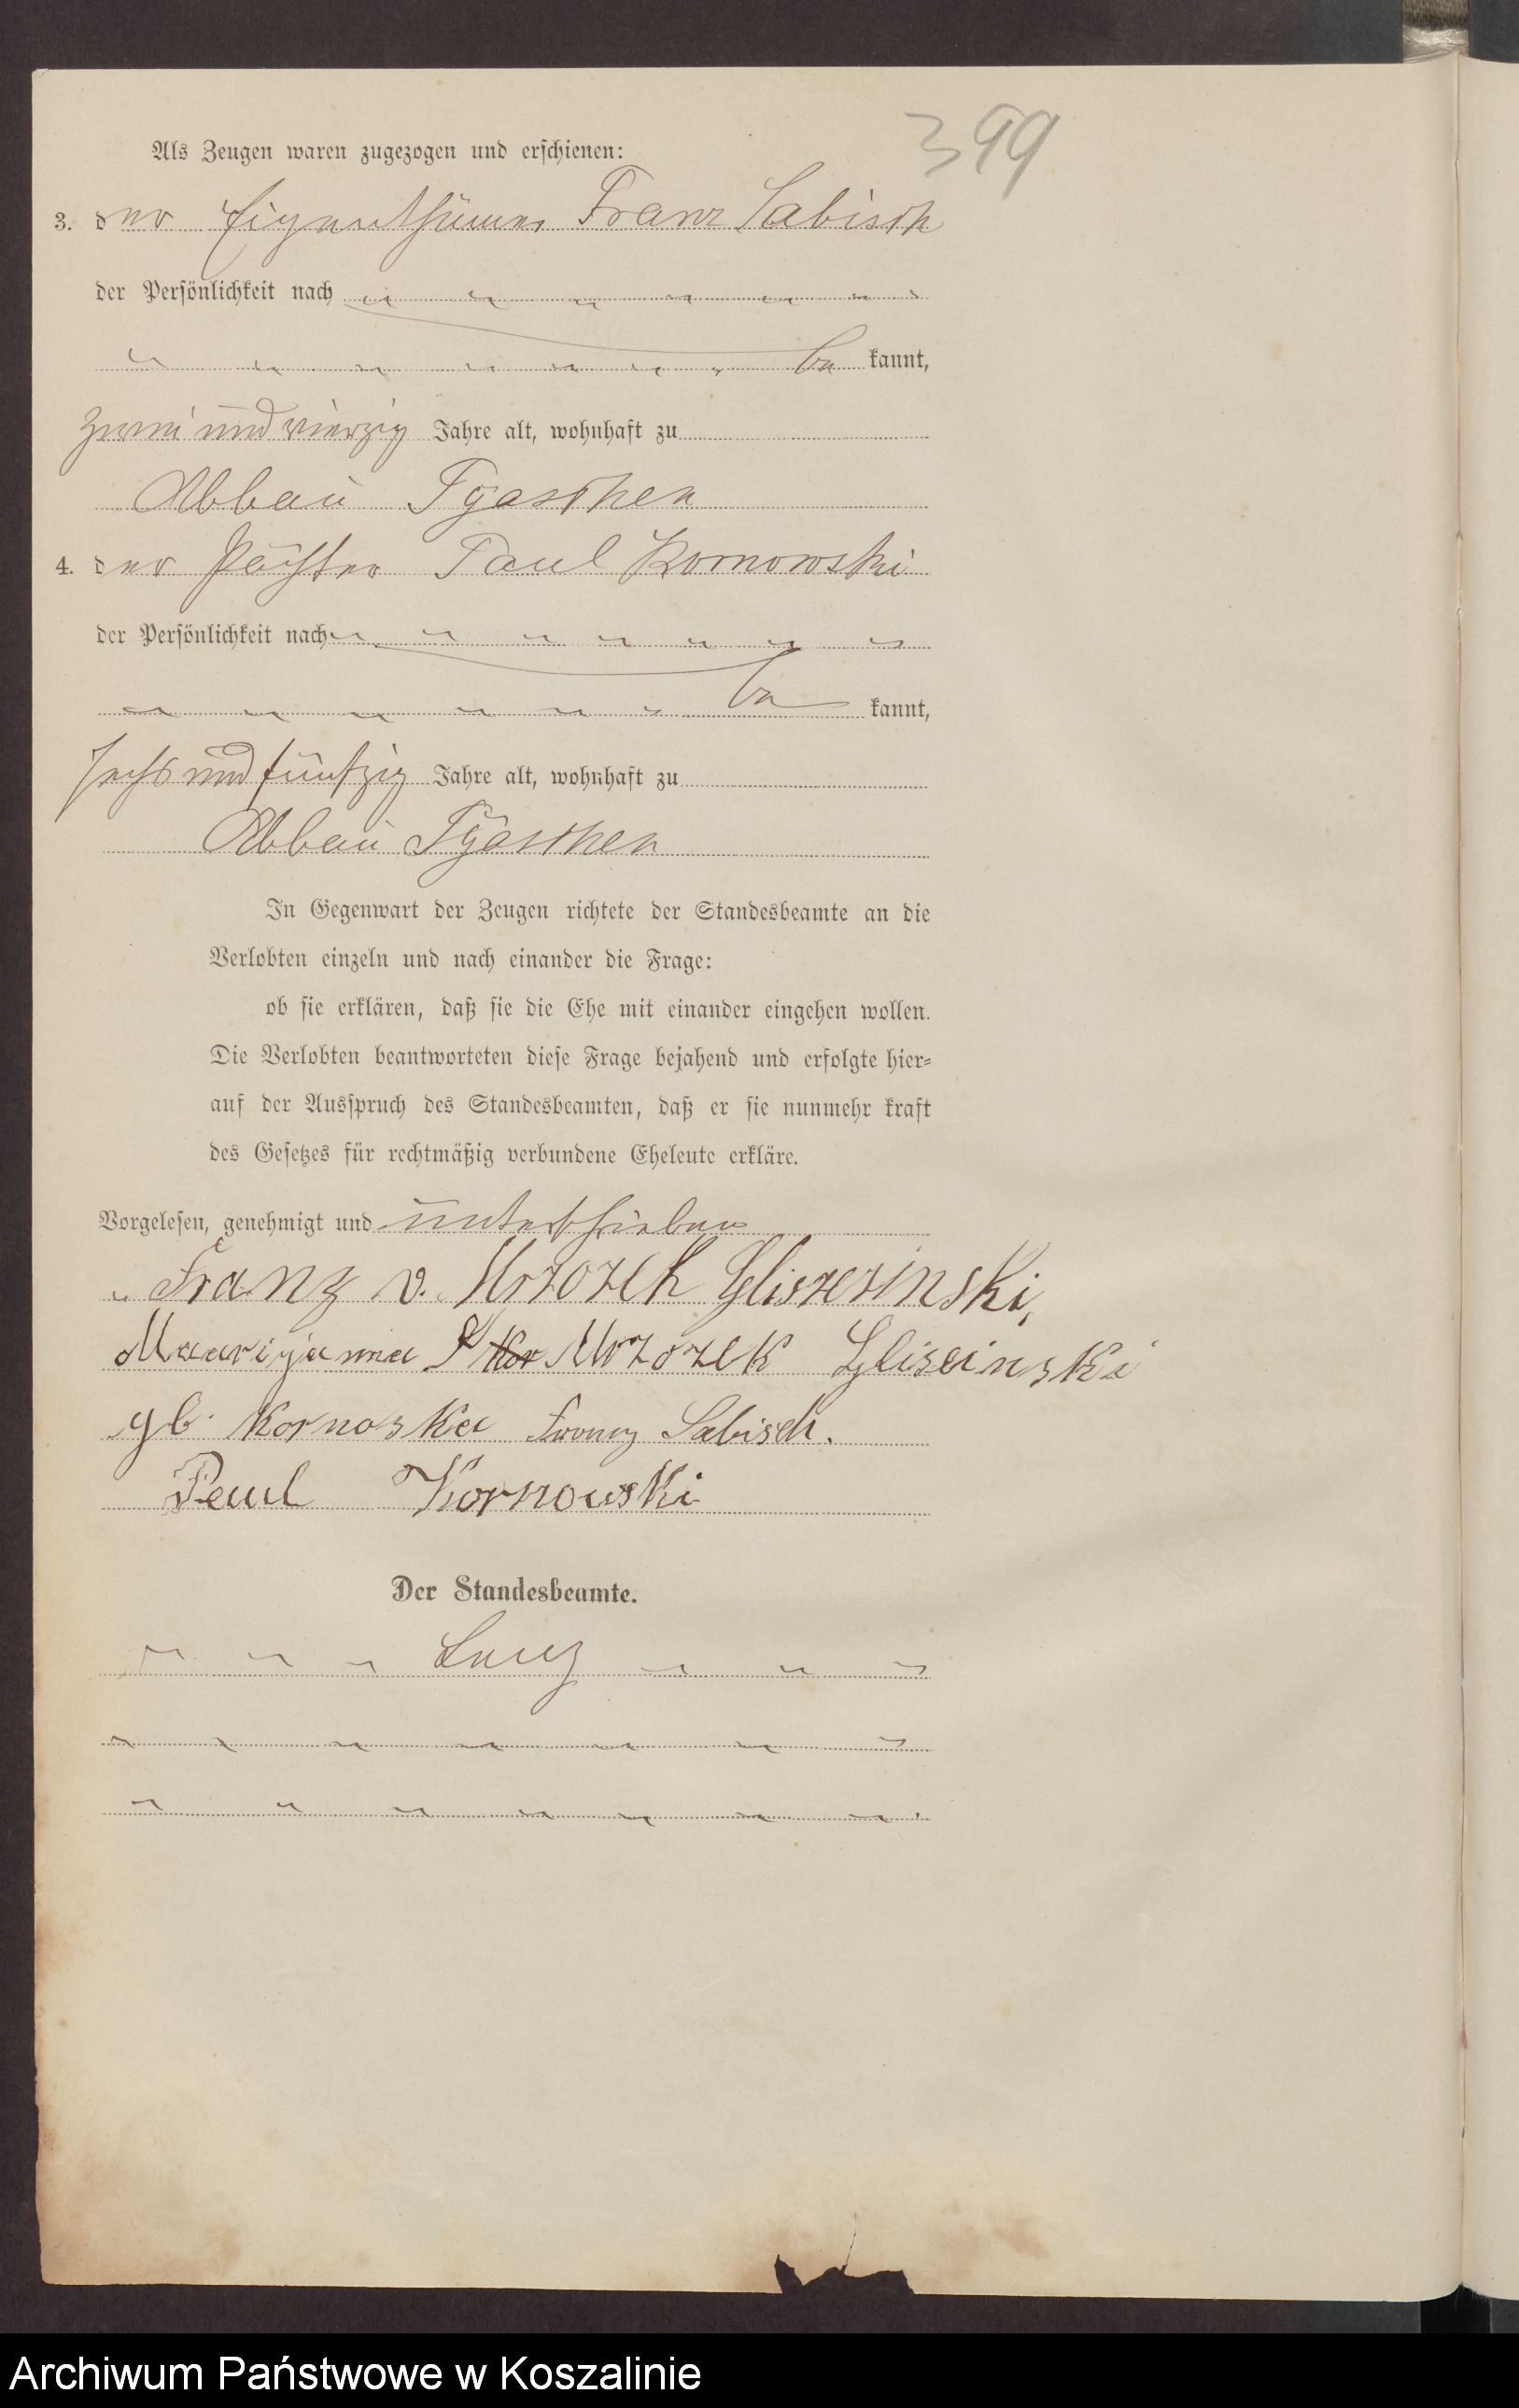 399
Als Zeugen waren zugezogen und erschienen:
3. der Eigenthümer Franz Sabisch
der Persönlichkeit nach
be kannt,
zwei und vierzig Jahre alt, wohnhaft zu
Abbau Tschaschen
4. der Pächter Paul Kornowski
der Persönlichkeit nach
be kannt,
sechs und fünfzig Jahre alt, wohnhaft zu
Abbau
In Gegenwart der Zeugen richtete der Standesbeamte an die
Verlobten einzeln und nach einander die Frage:
ob sie erklären, daß sie die Ehe mit einander eingehen wollen.
Die Verlobten beantworteten diese Frage bejahend und erfolgte hier=
auf der Ausspruch des Standesbeamten, daß er sie nunmehr kraft
des Gesetzes für rechtmäßig verbundene Eheleute erkläre.
Vorgelesen, genehmigt und unterschrieben
Franz v. Mrozek Gliszezinski,
Maarijanna Mrozek Gliscinski
gb. Kornoska Franz Sabisch.
Paul Kornowski
Der Standesbeamte.
Archiwum Państwowe w Koszalinie